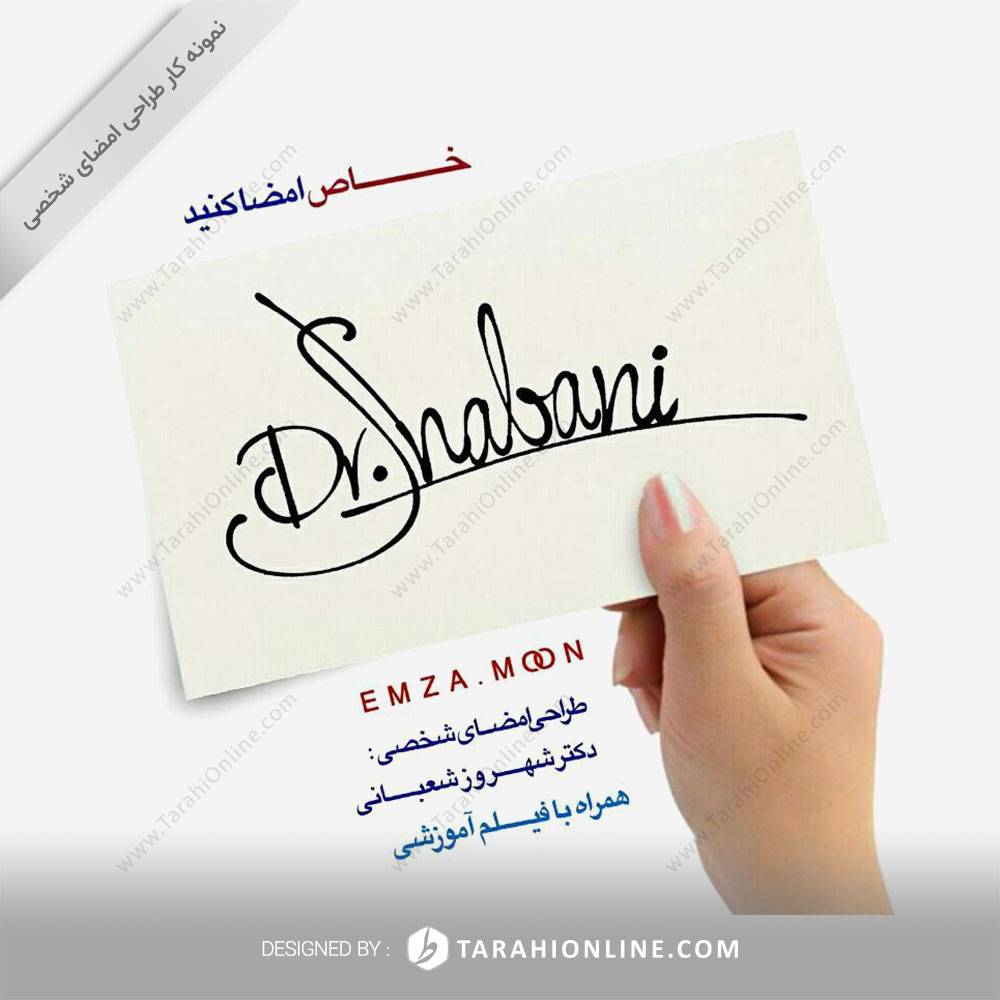 نمونه کار طراحی امضای شخصی
خاص امضا کنید
Dr. Shabani
EMZA.MOON
طراحی امضای شخصی:
دکتر شهروز شعبانی
همراه با فیلم آموزشی
DESIGNED BY : TARAHIONLINE.COM
www.TarahiOnline.com